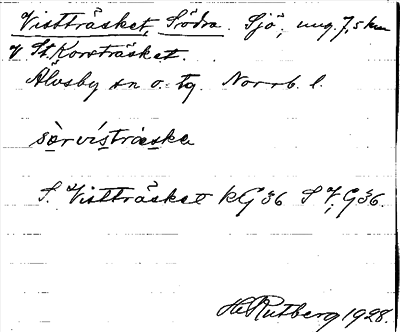 Vistträsket, Södra. Sjö, ung. 7,5 km
V St. Korsträsket.
Älvsby sn o. tg. Norrb. l.
sørvistræska
S. Vistträsket kG36 S V; G36.
H. Rutberg 1928.